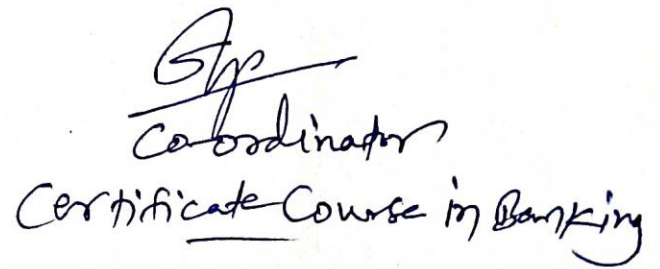 Co-ordinator
Certificate Course in Banking